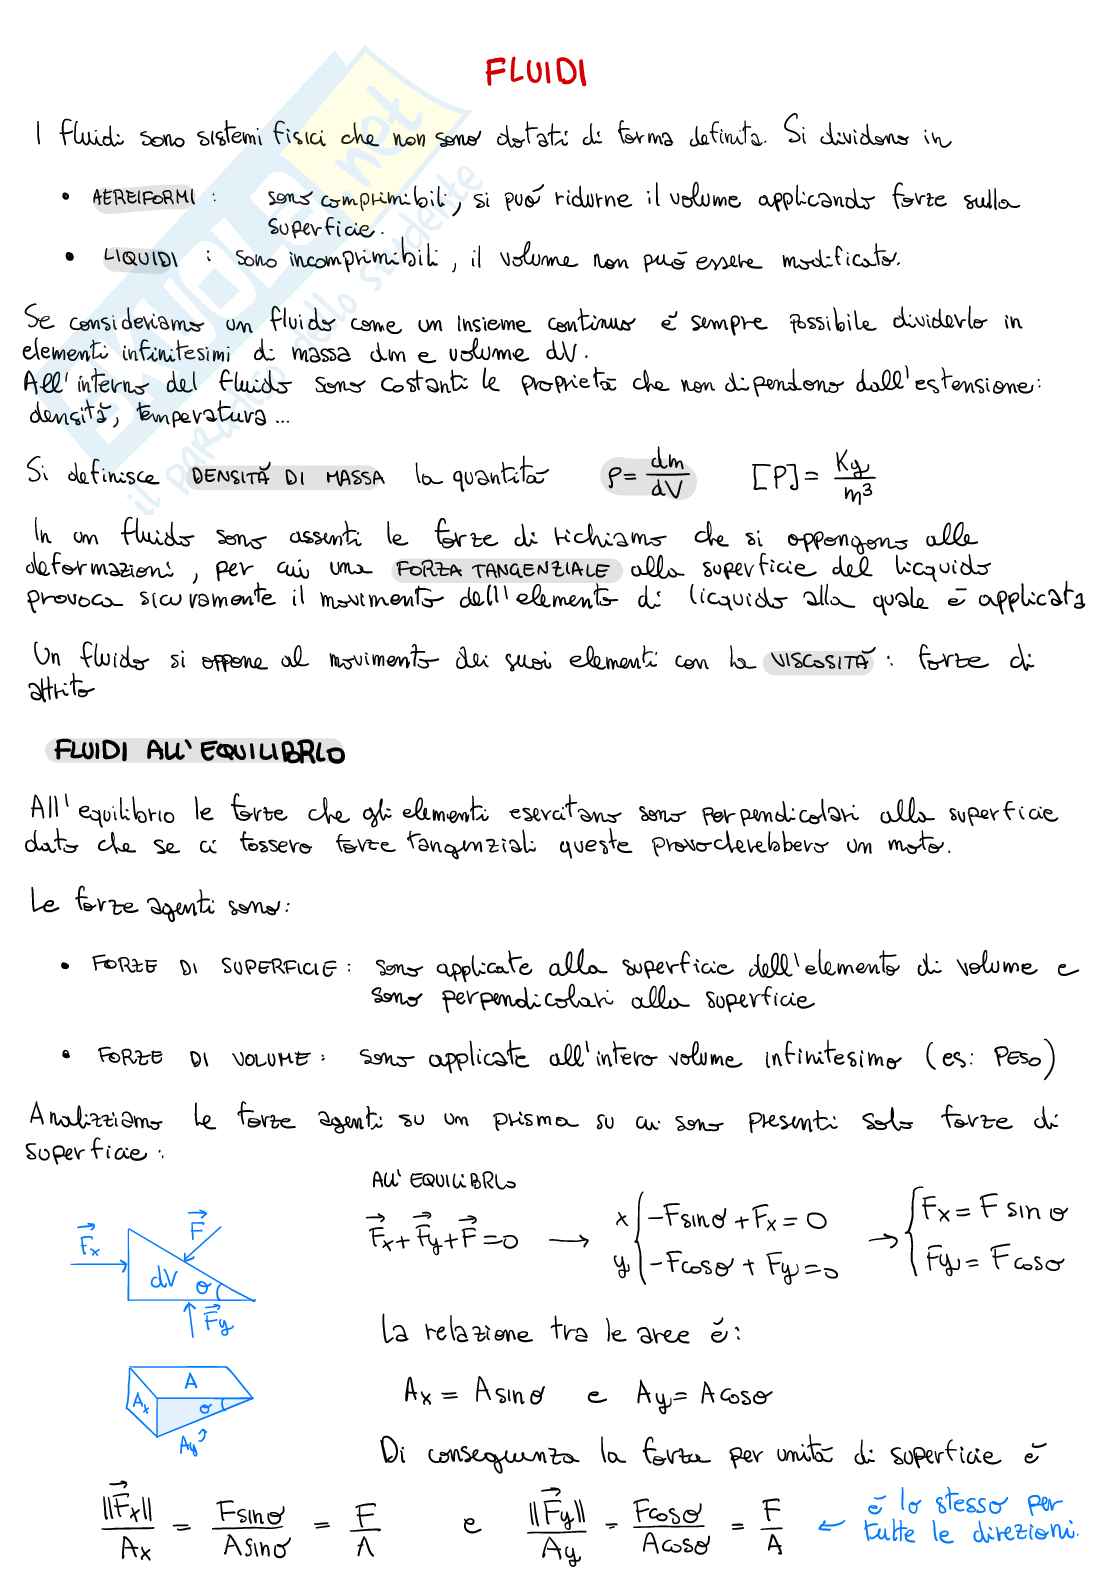 FLUIDI
I fluidi sono sistemi fisici che non sono dotati di forma definita. Si dividono in
• AEREIFORMI : sono comprimibili, si può ridurne il volume applicando forze sulla
superficie.
• LIQUIDI : sono incomprimibili, il volume non può essere modificato.
Se consideriamo un fluido come un insieme continuo è sempre possibile dividerlo in
elementi infinitesimi di massa dm e volume dV.
All'interno del fluido sono costanti le proprietà che non dipendono dall'estensione:
densità, temperatura...
Si definisce DENSITÀ DI MASSA la quantità ρ = dm/dV [ρ] = Kg/m³
In un fluido sono assenti le forze di richiamo che si oppongono alle
deformazioni, per cui una FORZA TANGENZIALE alla superficie del licquido
provoca sicuramente il movimento dell'elemento di licquido alla quale è applicata
Un fluido si oppone al movimento dei suoi elementi con la VISCOSITÀ : forze di
attrito
FLUIDI ALL'EQUILIBRIO
All'equilibrio le forze che gli elementi esercitano sono perpendicolari alla superficie
dato che se ci fossero forze tangenziali queste provocherebbero un moto.
Le forze agenti sono:
• FORZE DI SUPERFICIE : sono applicate alla superficie dell'elemento di volume e
sono perpendicolari alla superficie
• FORZE DI VOLUME : sono applicate all'intero volume infinitesimo (es: PESO)
Analizziamo le forze agenti su un prisma su cui sono presenti solo forze di
superficie :
ALL'EQUILIBRIO
F⃗x + F⃗y + F⃗ = 0 → x { -Fsinθ + Fx = 0 → { Fx = F sinθ
y { -Fcosθ + Fy = 0 { Fy = F cosθ
F⃗x F⃗ dV θ F⃗y
La relazione tra le aree è :
A Ax θ Ay
Ax = A sinθ e Ay = A cosθ
Di conseguenza la forza per unità di superficie è
||F⃗x||/Ax = Fsinθ/Asinθ = F/A e ||F⃗y||/Ay = Fcosθ/Acosθ = F/A ← è lo stesso per
tutte le direzioni.
SKUOLA.net
il paradiso dello studente